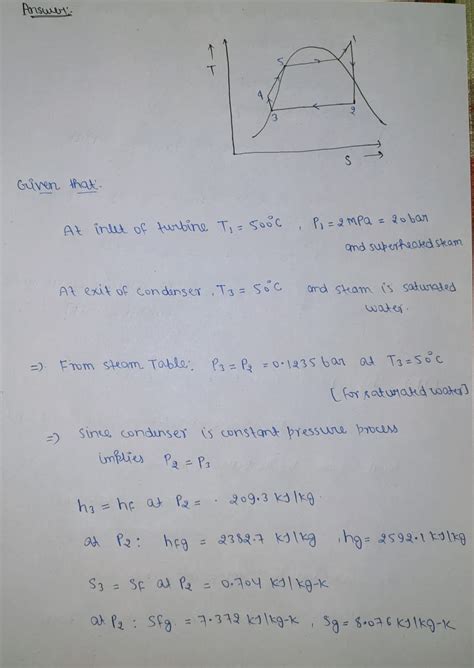 Answer:.
↑
T
1
5
4
3
2
S →
Given that:
At inlet of turbine T1 = 500°C , P1 = 2MPa = 20bar
and superheated steam
At exit of condenser , T3 = 50°C and steam is saturated
water.
⇒ From steam Table: P3 = P2 = 0.1235 bar at T3 = 50°C
[for saturated water]
⇒ Since condenser is constant pressure process
implies P2 = P3
h3 = hf at P2 = . 209.3 kJ/kg.
at P2 : hfg = 2382.7 kJ/kg , hg = 2592.1 kJ/kg
S3 = Sf at P2 = 0.704 kJ/kg-K
at P2 : Sfg = 7.372 kJ/kg-K , Sg = 8.076 kJ/kg-K